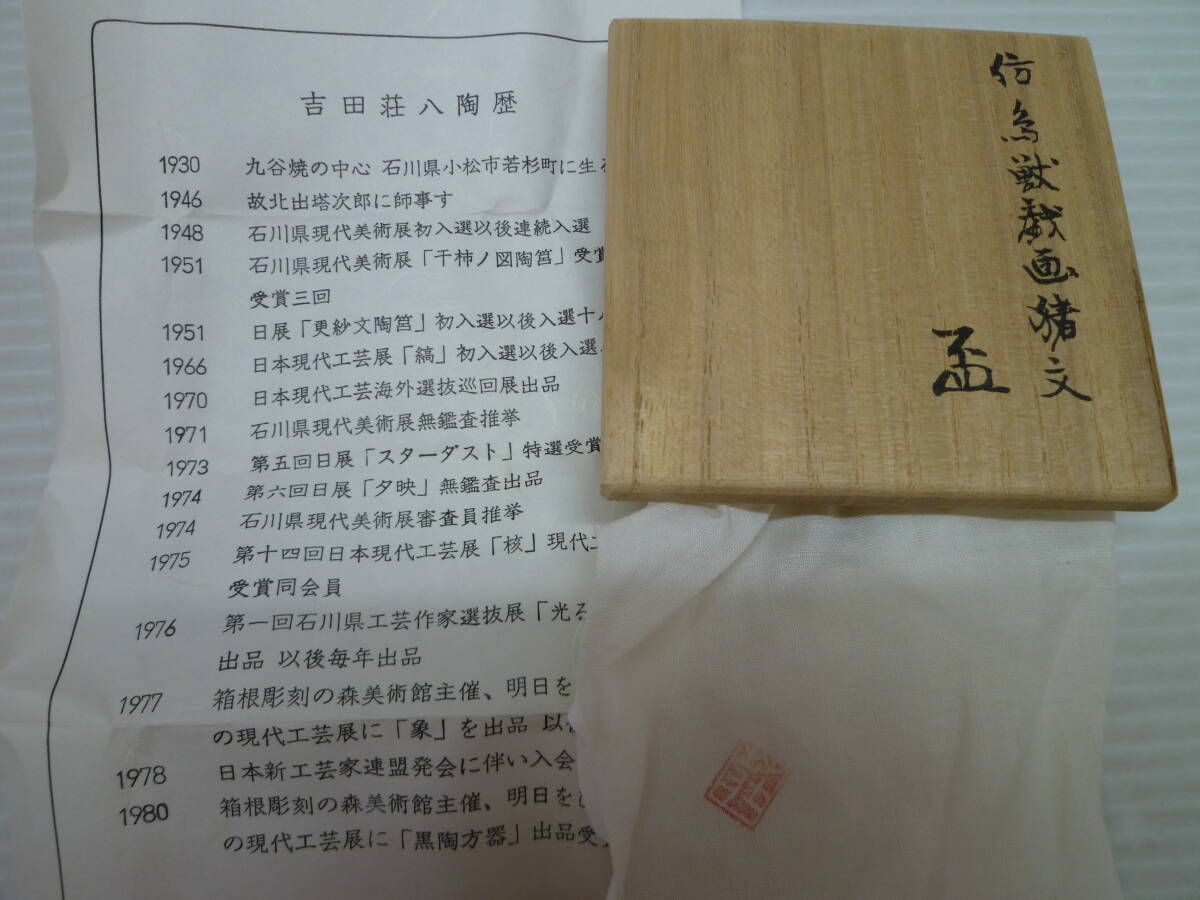 吉田荘八陶歴
1930 九谷焼の中心 石川県小松市若杉町に生
1946 故北出塔次郎に師事す
1948 石川県現代美術展初入選以後連続入選
1951 石川県現代美術展「干柿ノ図陶筥」受賞
受賞三回
1951 日展「更紗文陶筥」初入選以後入選十
1966 日本現代工芸展「縞」初入選以後入選
1970 日本現代工芸海外選抜巡回展出品
1971 石川県現代美術展無鑑査推挙
1973 第五回日展「スターダスト」特選受賞
1974 第六回日展「夕映」無鑑査出品
1974 石川県現代美術展審査員推挙
1975 第十四回日本現代工芸展「核」現代
受賞同会員
1976 第一回石川県工芸作家選抜展「光る
出品 以後毎年出品
1977 箱根彫刻の森美術館主催、明日を
の現代工芸展に「象」を出品 以
1978 日本新工芸家連盟発会に伴い入会
1980 箱根彫刻の森美術館主催、明日を
の現代工芸展に「黒陶方器」出品受
仿鳥獣戯画猪文
盃